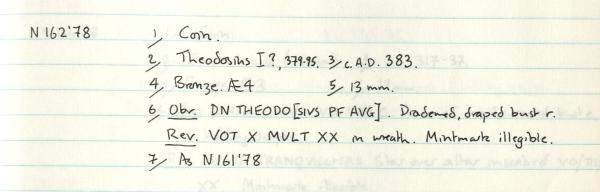 N162'78 1, Coin.
2, Theodosius I?, 379-95. 3, c. A.D. 383.
4, Bronze. Æ4 5, 13 mm.
6, Obv. DN THEODO[SIVS PF AVG]. Diademed, draped bust r.
Rev. VOT X MULT XX in wreath. Mintmark illegible.
7, As N161'78